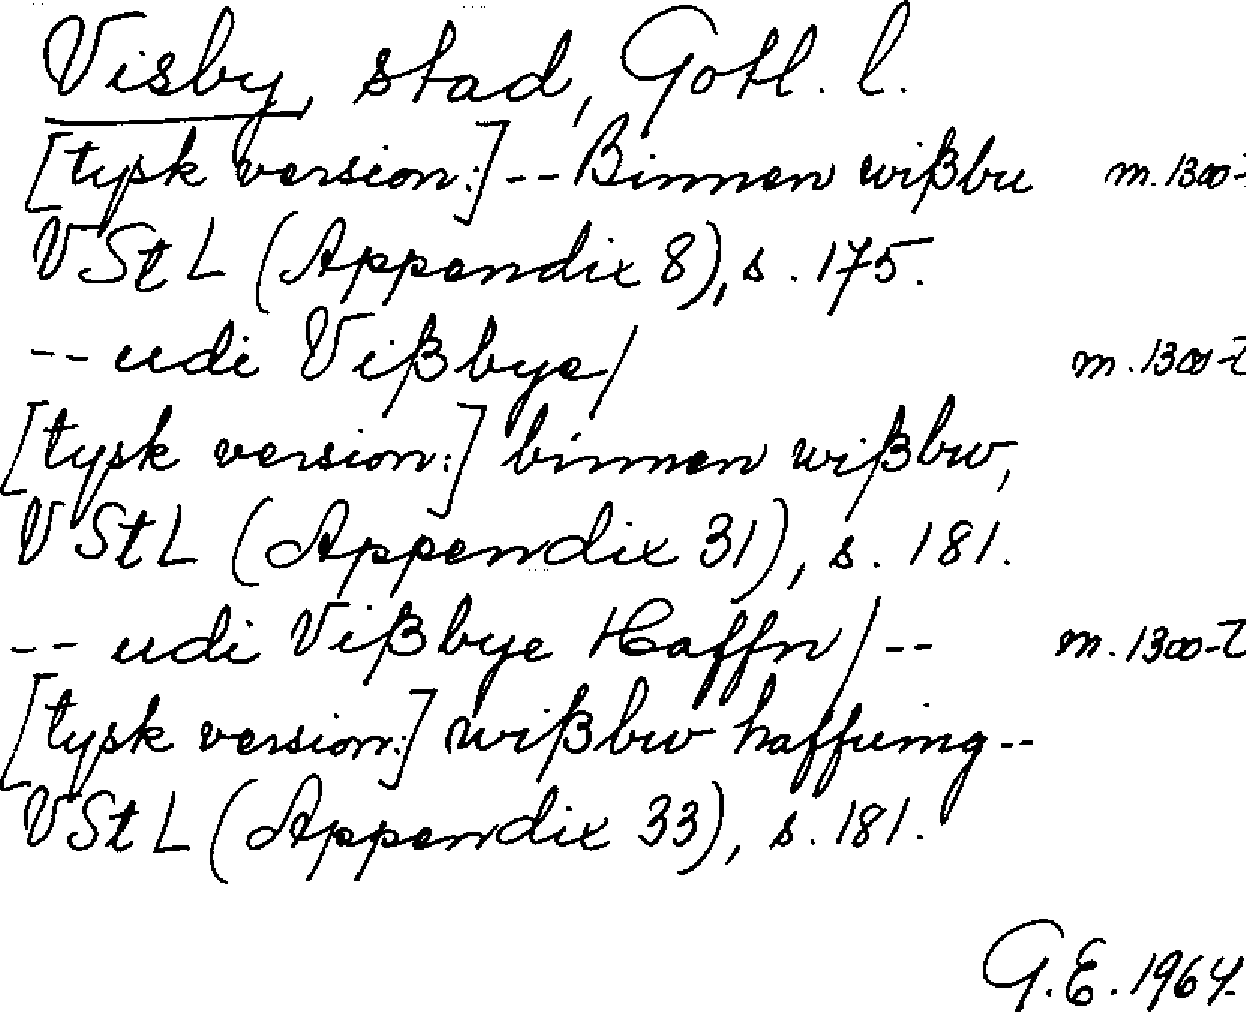 Visby, stad, Gotl. l.
[tysk version:] -- Binnen wißbu m. 1300-t
VStL (Appendix 8), s. 175.
-- udi Vißbye/ m. 1300-t
[tysk version:] binnen wißbw,
VStL (Appendix 31), s. 181.
-- udi Vißbye Haffn/ -- m. 1300-t
[tysk version:] wißbw haffuing --
VStL (Appendix 33), s. 181.
G.E. 1964.